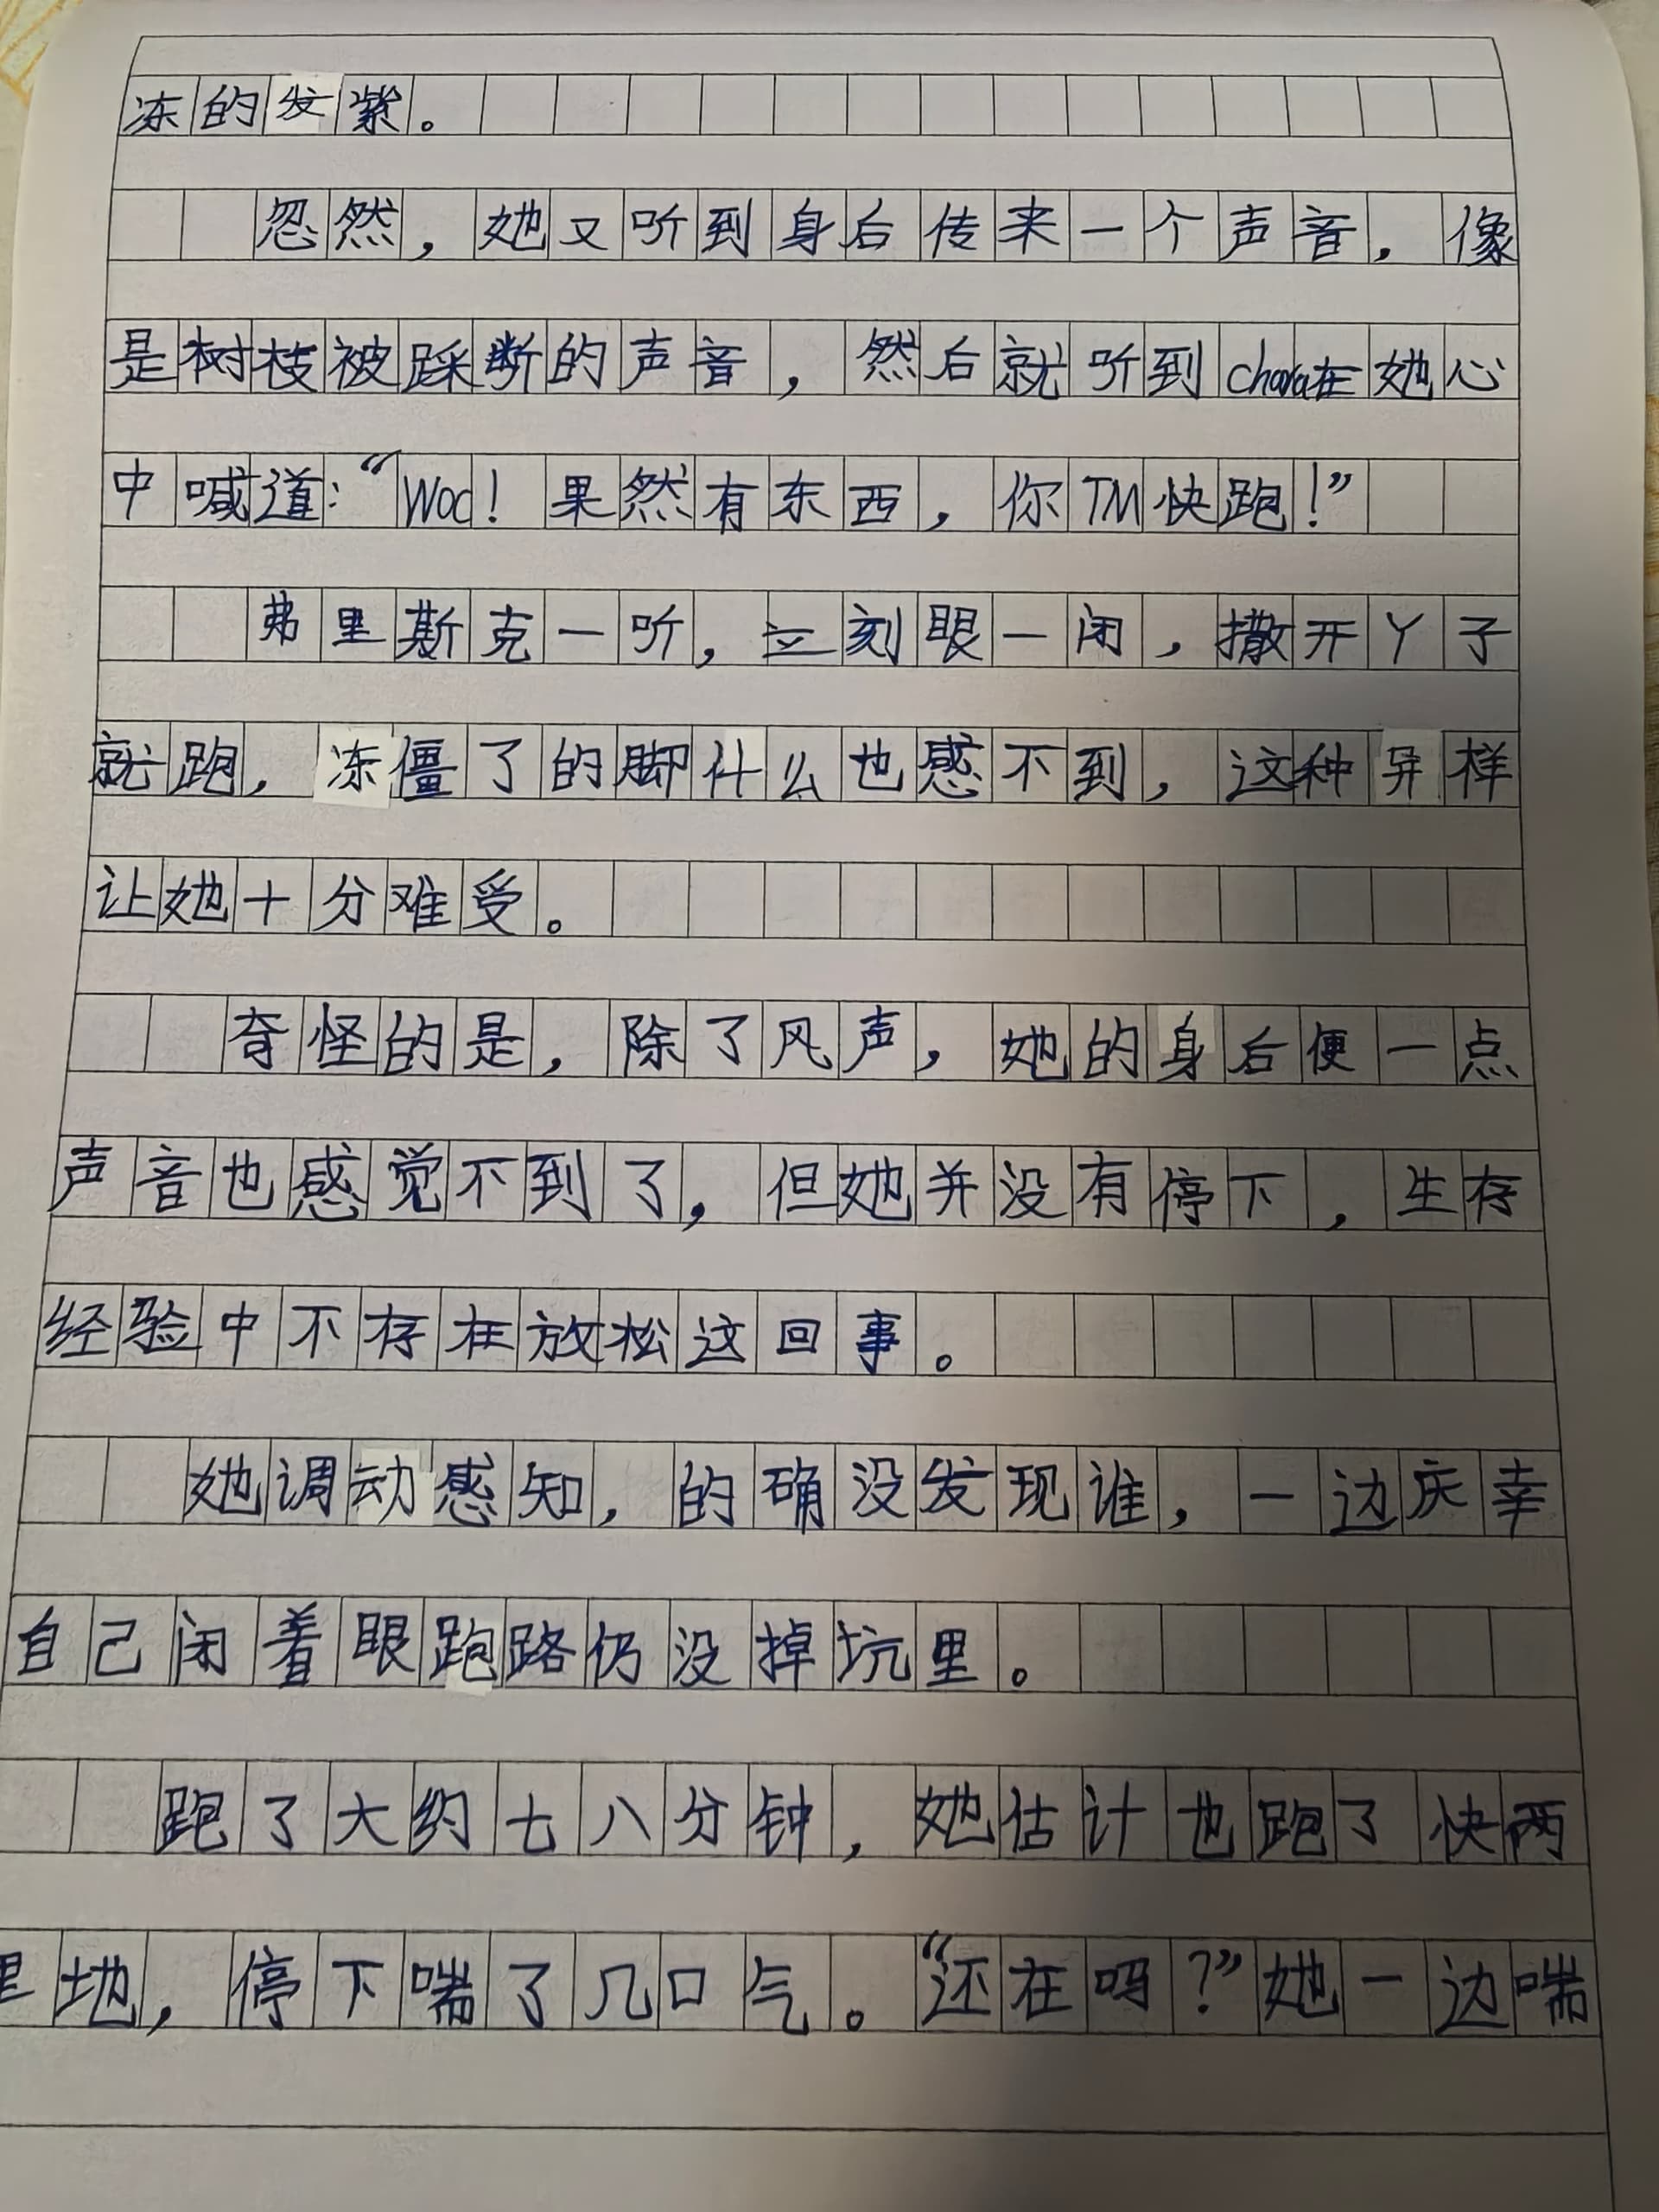 冻的发紫。
忽然，她又听到身后传来一个声音，像
是树枝被踩断的声音，然后就听到chara在她心
中喊道：“Woc！果然有东西，你TM快跑！”
弗里斯克一听，立刻眼一闭，撒开丫子
就跑，冻僵了的脚什么也感不到，这种异样
让她十分难受。
奇怪的是，除了风声，她的身后便一点
声音也感觉不到了，但她并没有停下，生存
经验中不存在放松这回事。
她调动感知，的确没发现谁，一边庆幸
自己闭着眼跑路仍没掉坑里。
跑了大约七八分钟，她估计也跑了快两
里地，停下喘了几口气。“还在吗？”她一边喘